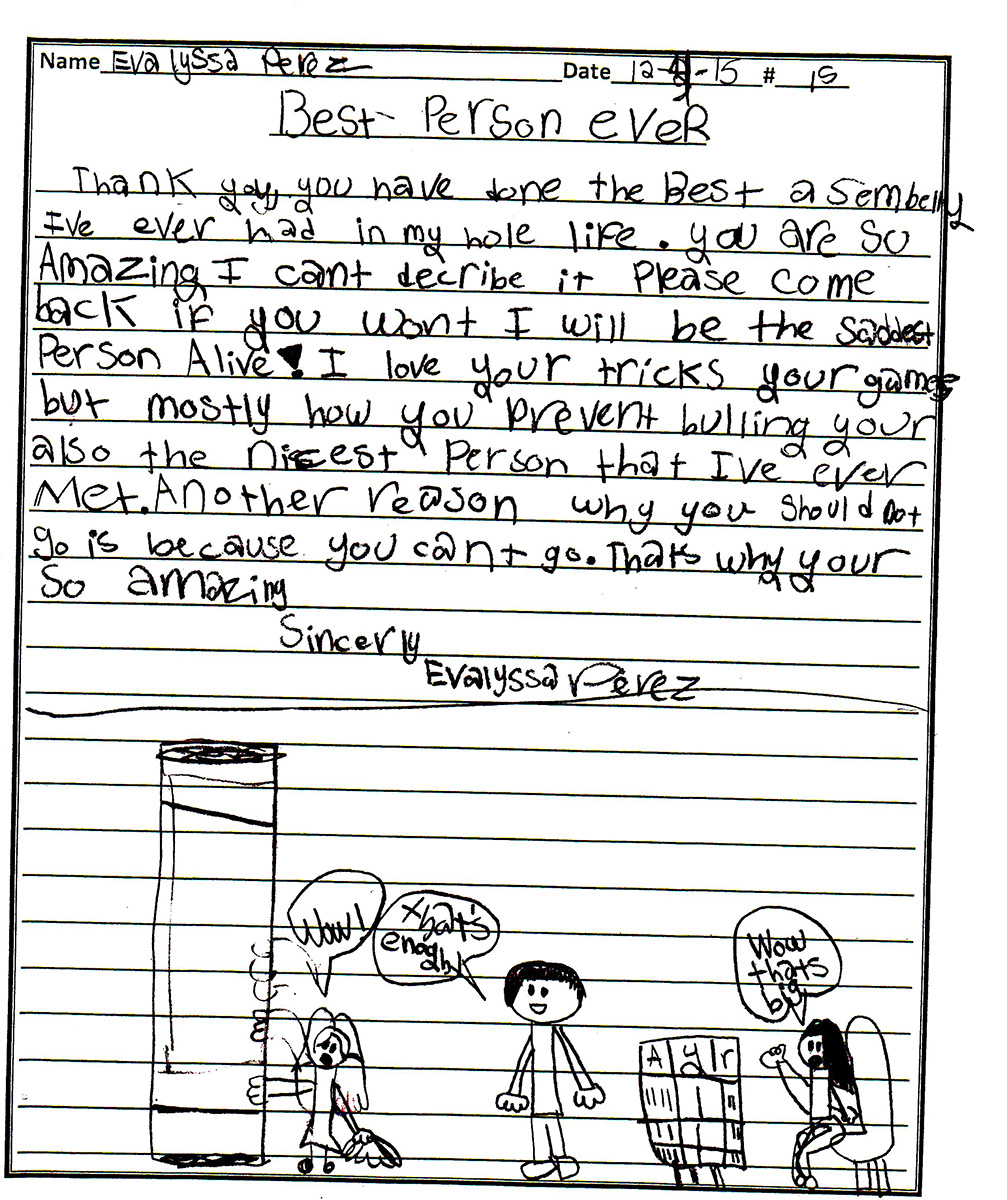 Name Evalyssa Perez Date 12-4-15 # 15
Best Person ever
Thank you, you have done the Best asembelly
I've ever had in my hole life. you are so
Amazing I cant decribe it Please come
back if you wont I will be the saddest
Person Alive! I love your tricks your games
but mostly how you prevent bulling your
also the nicest Person that I've ever
Met. Another reason why you should not
go is because you can't go. That's why your
So amazing
Sincerly
Evalyssa Perez
Wow!
that's
enogh!
Wow
thats
big
A y r